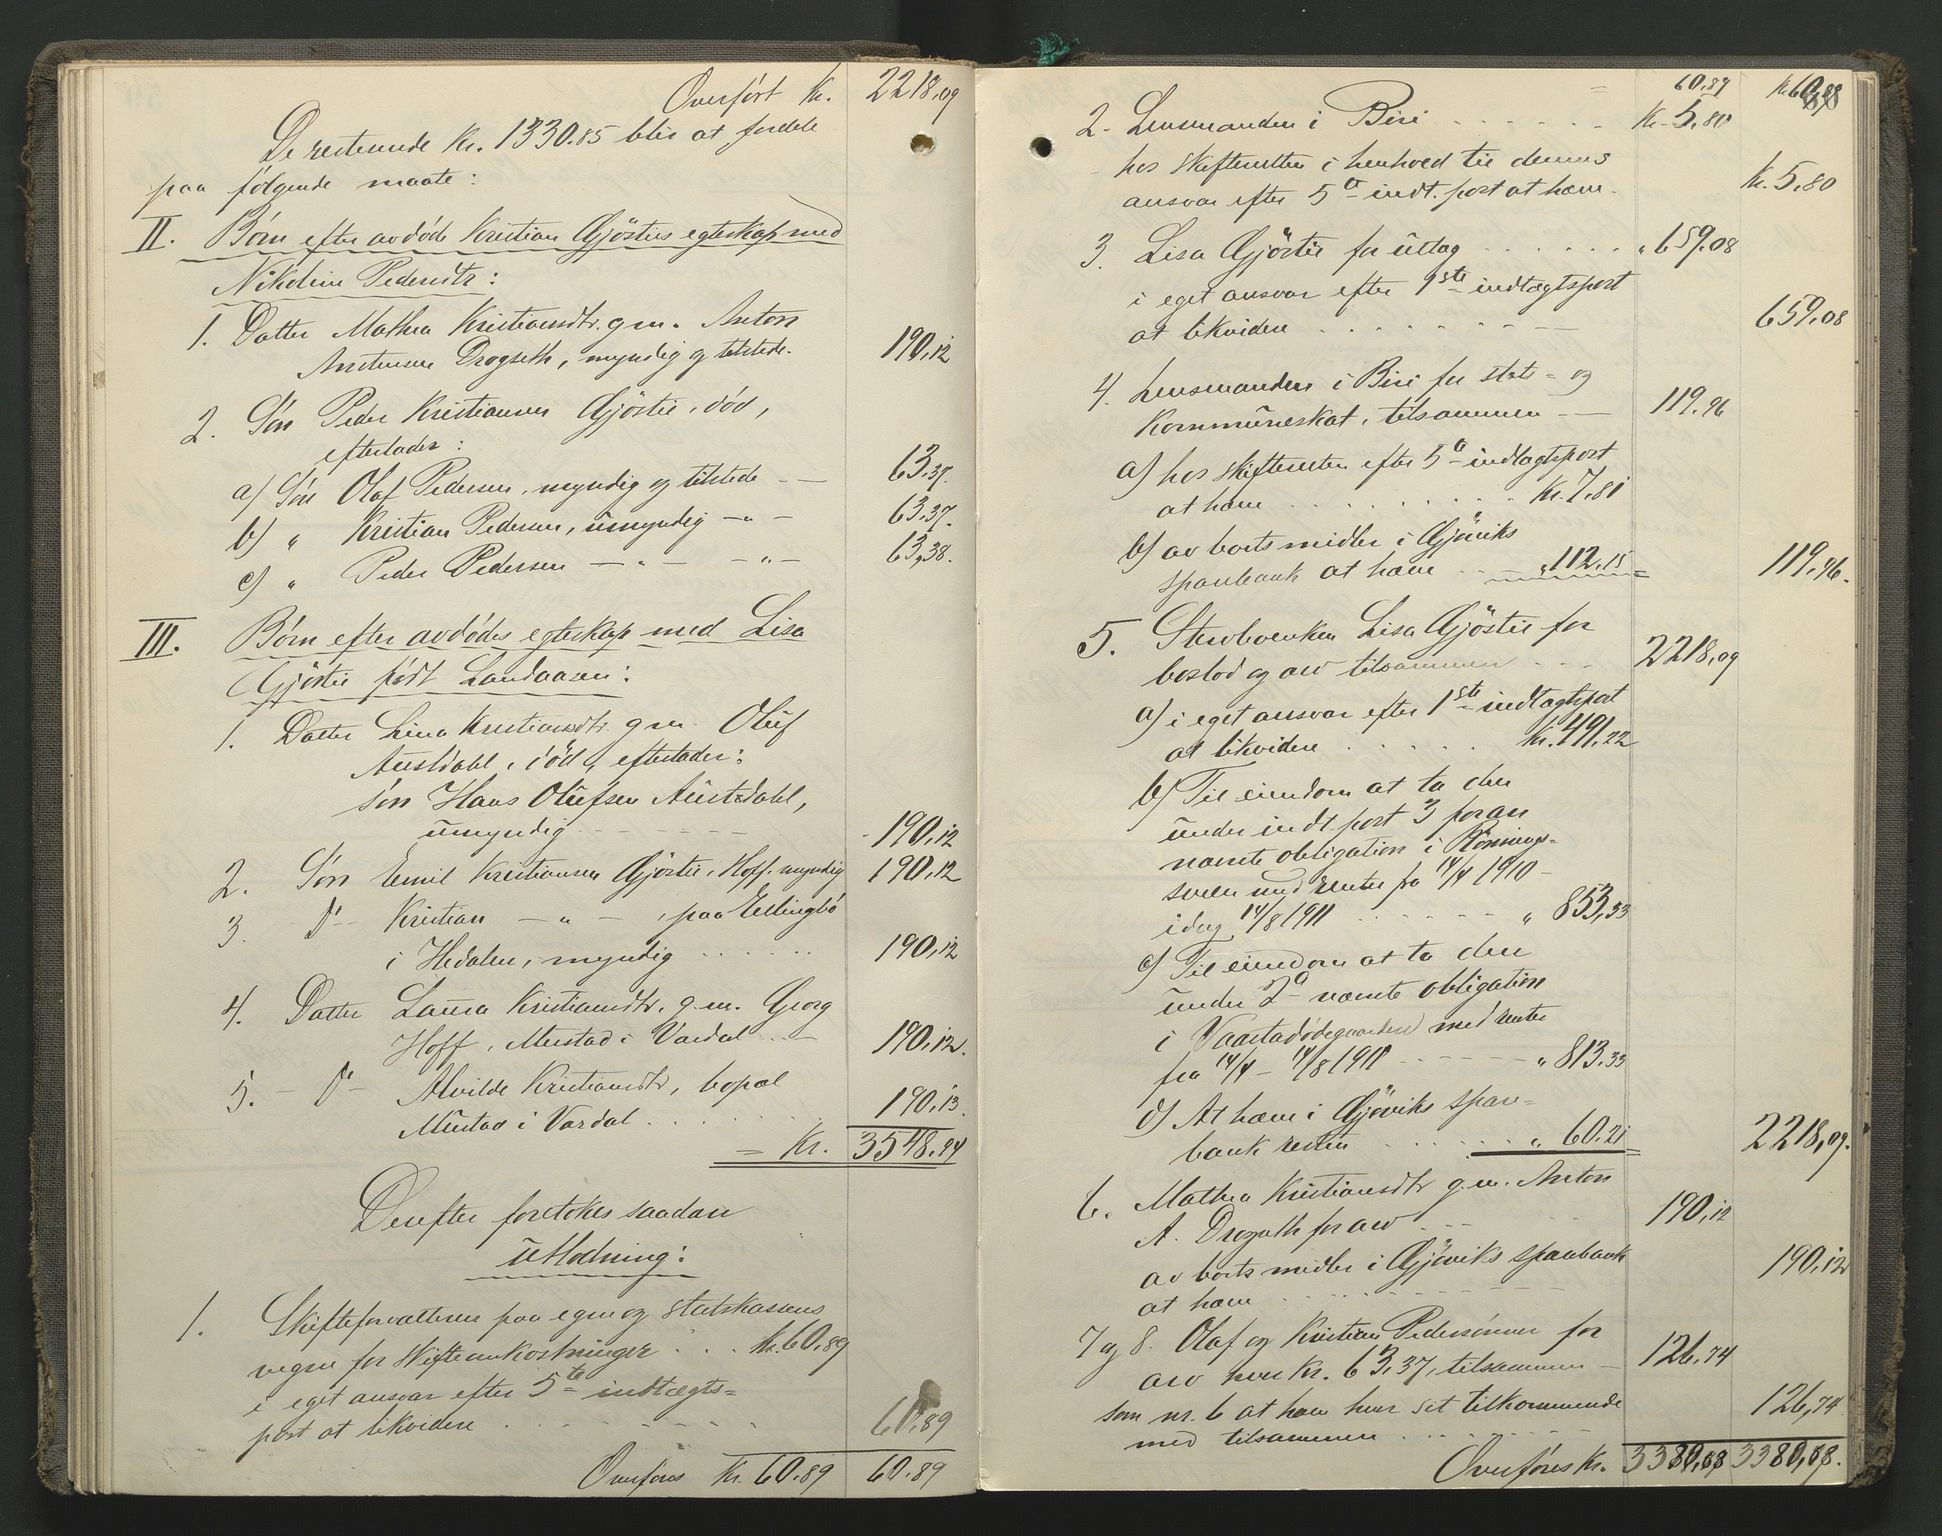 Overført Kr. 2218,09
De resterende Kr. 1330.85 blir at fordele
paa følgende maate:
II. Børn efter avdøde Kristian Gjøsties egteskap med
Nikoline Pedersdtr:
1. Datter Mathea Kristiansdtr. g.m. Anton
Antensen Drogseth, myndig og tilstede. 190,12
2. Søn Peder Kristiansen Gjøstie, død,
efterlader:
a) Søn Olaf Pedersen, myndig og tilstede — 63,37.
b) „ Kristian Pedersen, umyndig —„— 63,37.
c) „ Peder Pedersen —„— —„— 63,38.
III. Børn efter avdødes egteskap med Lisa
Gjøstie født Landaasen:
1. Datter Lina Kristiansdtr. g.m. Oluf
Austdahl, død, efterlader:
søn Hans Olufsen Austdahl,
umyndig 190,12
2. Søn Emil Kristiansen Gjøstie, Hoff, myndig 190,12
3. D°— Kristian —„—, paa Ellingbø
i Hedalen, myndig ...... 190,12
4. Datter Laura Kristiansdtr. g.m. Georg
Hoff, Mustad i Vardal 190,12.
5. — D°— Alvilde Kristiansdtr, bopæl
Mustad i Vardal ...... 190,13.
= Kr. 3548,94
Derefter foretokes saadan
utlodning:
1. Skifteforvalteren paa egne og statskassens
vegne for skifteomkostninger ... kr. 60,89
i eget ansvar efter 5te indtægts=
post at likvidere ...... 60,89
Overføres Kr. 60.89 60.89
= 60,89 kr. 60,89
2. Lensmanden i Biri ...... Kr. 5,80
hos skifteretten i henhold til dennes
ansvar efter 5te indt. post at hæve. kr. 5,80
3. Lisa Gjøstie for utlæg ...... „ 659.08
i eget ansvar efter 1ste indtægtspost
at likvidere ...... 659,08
4. Lensmanden i Biri for stats= og
kommuneskat, tilsammen — 119.96
a) hos skifteretten efter 5te indtægtspost
at hæve ...... Kr. 7.81
b) av boets midler i Gjøviks
sparebank at hæve .. „ 112.15 = 119,96.
5. Stervboenken Lisa Gjøstie for
boslod og arv tilsammen ... 2218,09
a) i eget ansvar efter 1ste indtægtspost
at likvidere ...... Kr. 491,22
b) Til eiendom at ta den
under indt. post 3 foran
nævnte obligation i Rønnings=
sveen med renter fra 14/4 1910 –
idag 14/8 1911 ...... „ 853,33
c) Til eiendom at ta den
under 2den nævnte obligation
i Vaarstadødegaarden med renter
fra 14/4 – 14/8 1911 ...... „ 813,33
d) At hæve i Gjøviks spare=
bank resten ...... „ 60.21 = 2218,09.
6. Mathea Kristiansdtr g.m. Anton
A. Drogseth for arv ... 190,12
av boets midler i Gjøviks sparebank
at hæve ...... 190,12
7 og 8. Olaf og Kristian Pederssønner for
arv hver Kr. 63,37, tilsammen — 126,74
som nr. 6 at hæve hver sit tilkommende
med tilsammen ...... 126,74.
Overføres Kr. 3380,68 3380,68.